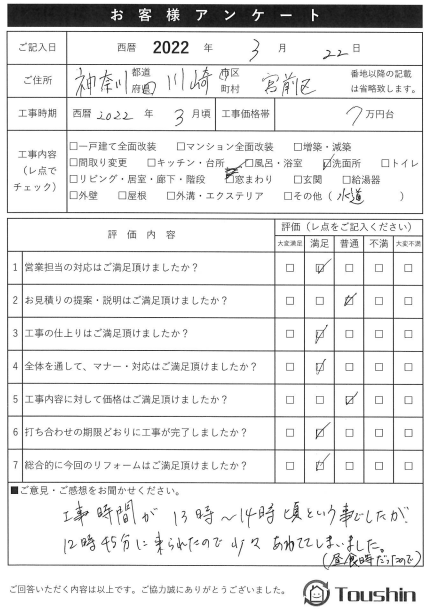 お客様アンケート
ご記入日 西暦 2022 年 3 月 22 日
ご住所 神奈川 都道府県 川崎 市区町村 宮前区 番地以降の記載は省略致します。
工事時期 西暦 2022 年 3 月頃 工事価格帯 7 万円台
工事内容（レ点でチェック）
□一戸建て全面改装 □マンション全面改装 □増築・減築
□間取り変更 □キッチン・台所 □風呂・浴室 ☑洗面所 □トイレ
□リビング・居室・廊下・階段 □窓まわり □玄関 □給湯器
□外壁 □屋根 □外溝・エクステリア □その他（水道）
評価内容 評価（レ点をご記入ください）
大変満足 満足 普通 不満 大変不満
1 営業担当の対応はご満足頂けましたか？ □ ☑ □ □ □
2 お見積りの提案・説明はご満足頂けましたか？ □ □ ☑ □ □
3 工事の仕上りはご満足頂けましたか？ □ ☑ □ □ □
4 全体を通して、マナー・対応はご満足頂けましたか？ □ ☑ □ □ □
5 工事内容に対して価格はご満足頂けましたか？ □ □ ☑ □ □
6 打ち合わせの期限どおりに工事が完了しましたか？ □ ☑ □ □ □
7 総合的に今回のリフォームはご満足頂けましたか？ □ ☑ □ □ □
■ご意見・ご感想をお聞かせください。
工事時間が 13時～14時頃という事でしたが、
12時45分に来られたので 少々 あわててしまいました。
（昼食時だったので）
ご回答いただく内容は以上です。ご協力誠にありがとうございました。
Toushin